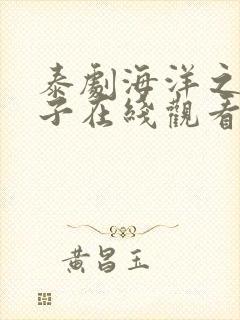 泰劇海洋之
子在綫觀看
黄昌玉